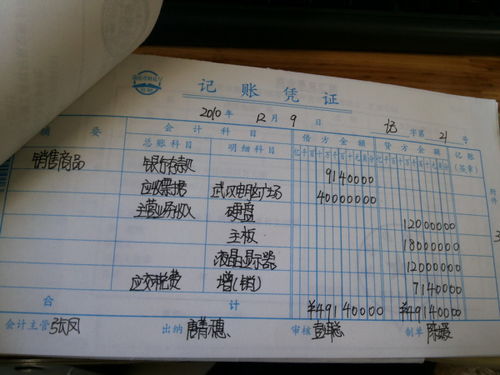 记账凭证
2010年 12月 9日 记字第 21号
摘要 会计科目 借方金额 贷方金额 记账(签章)
总账科目 明细科目
销售商品 银行存款 9140000
应收票据 40000000
主营业务收入 硬盘 12000000
主板 18000000
液晶显示器 12000000
应交税费 增(销) 7140000
合计 ¥49140000 ¥49140000
会计主管 张凤 出纳 审核 制单